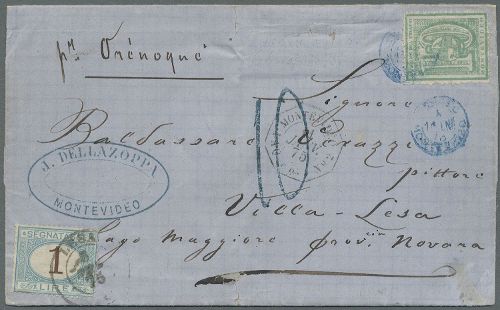 pr. Orénoque
Signore
Baldassare Verazzi
pittore
Villa-Lesa
Lago Maggiore prov.cia Novara
J. DELLAZOPPA
MONTEVIDEO
SEGNATASSE
1
LIRE
10
MONTEVIDEO
JANV.
75